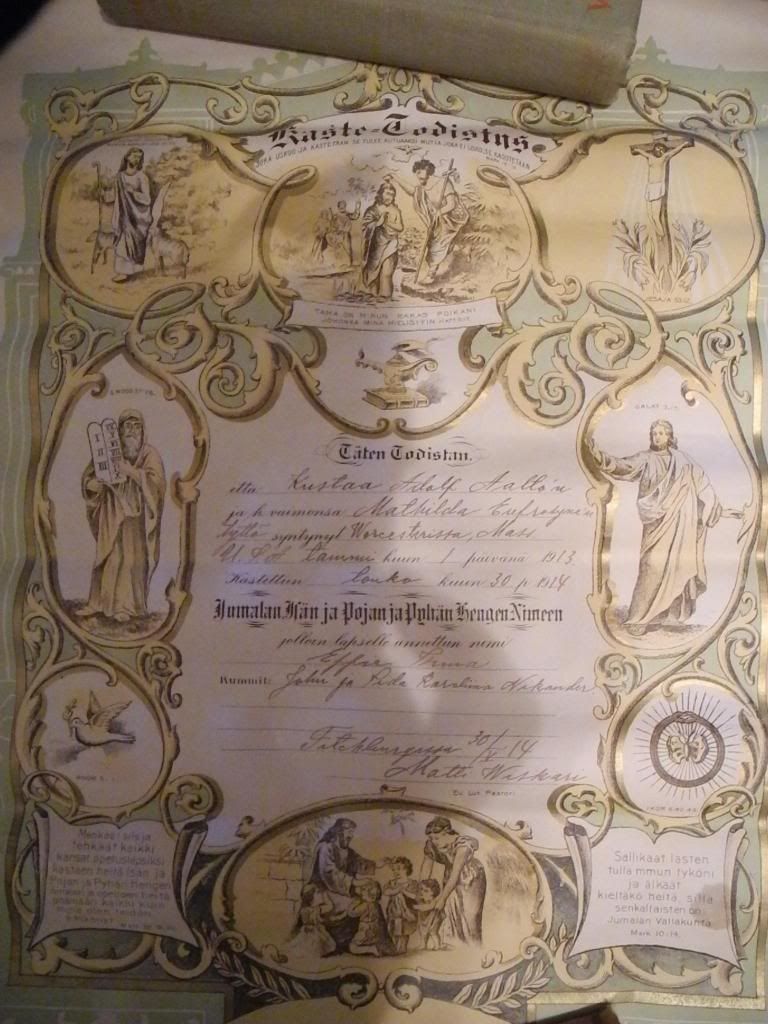 Kaste-Todistus
JOKA USKOO JA KASTETAAN SE TULEE AUTUAAKSI MUTTA JOKA EI USKO, SE KADOTETAAN
MARK 16:16
JESAJA 53:12
TÄMÄ ON MINUN RAKAS POIKANI
JOHONKA MINÄ MIELISTYIN MATT 3:17
GALAT 3:13
I II III
Täten Todistan,
että Kustaa Adolf Aallo'n
ja h. vaimonsa Mathilda Eufrosyne'n
tyttö syntynyt Worcesterissa, Mass
U.S.A. tammi kuun 1 päivänä 1913
Kastettun touko kuun 30 p. 1914
Jumalan, Isän ja Pojan ja Pyhän Hengen Nimeen
jolloin lapselle annettun nimi
Irma
Kummit: John ja Aida Karoliina Nikander
Fitchburgissa 30/V-14
Matti Wiskari
Ev. Lut. Pastori
Menkää siis ja
tehkäät kaikki
kansat opetuslapsiksi
kastaen heitä Isän ja
Pojan ja Pyhän Hengen
nimeen ja opettaen heitä
pitämään kaikki kuin
minä olen teidän
käskenyt
Sallikaat lasten
tulla minun tyköni
ja älkäät
kieltäkö heitä, sillä
senkaltaisten on
Jumalan Valtakunta
Mark 10:14.